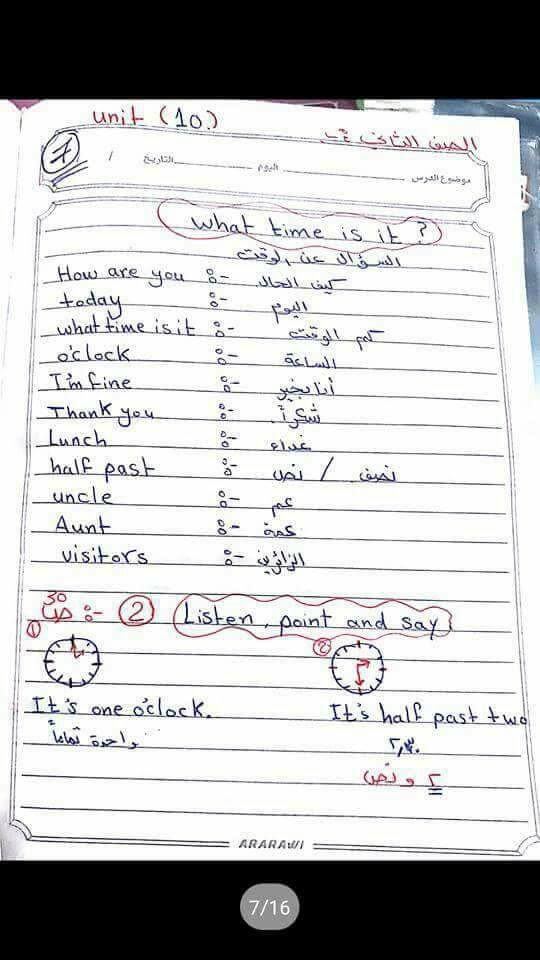 unit (10)
الصف الثاني
7
موضوع الدرس اليوم التاريخ /
What time is it ?
السؤال عن الوقت
How are you :- كيف الحال
today :- اليوم
what time is it :- كم الوقت
o'clock :- الساعة
I'm fine :- أنا بخير
Thank you :- شكراً
Lunch :- غداء
half past :- نصف / نص
uncle :- عم
Aunt :- عمة
visitors :- الزائرين
ص 30 :- 2 Listen, point and say
1 2
It's one o'clock. It's half past two
واحدة تماماً ٢,٣٠
٢ و نص
ARARAWI
7/16